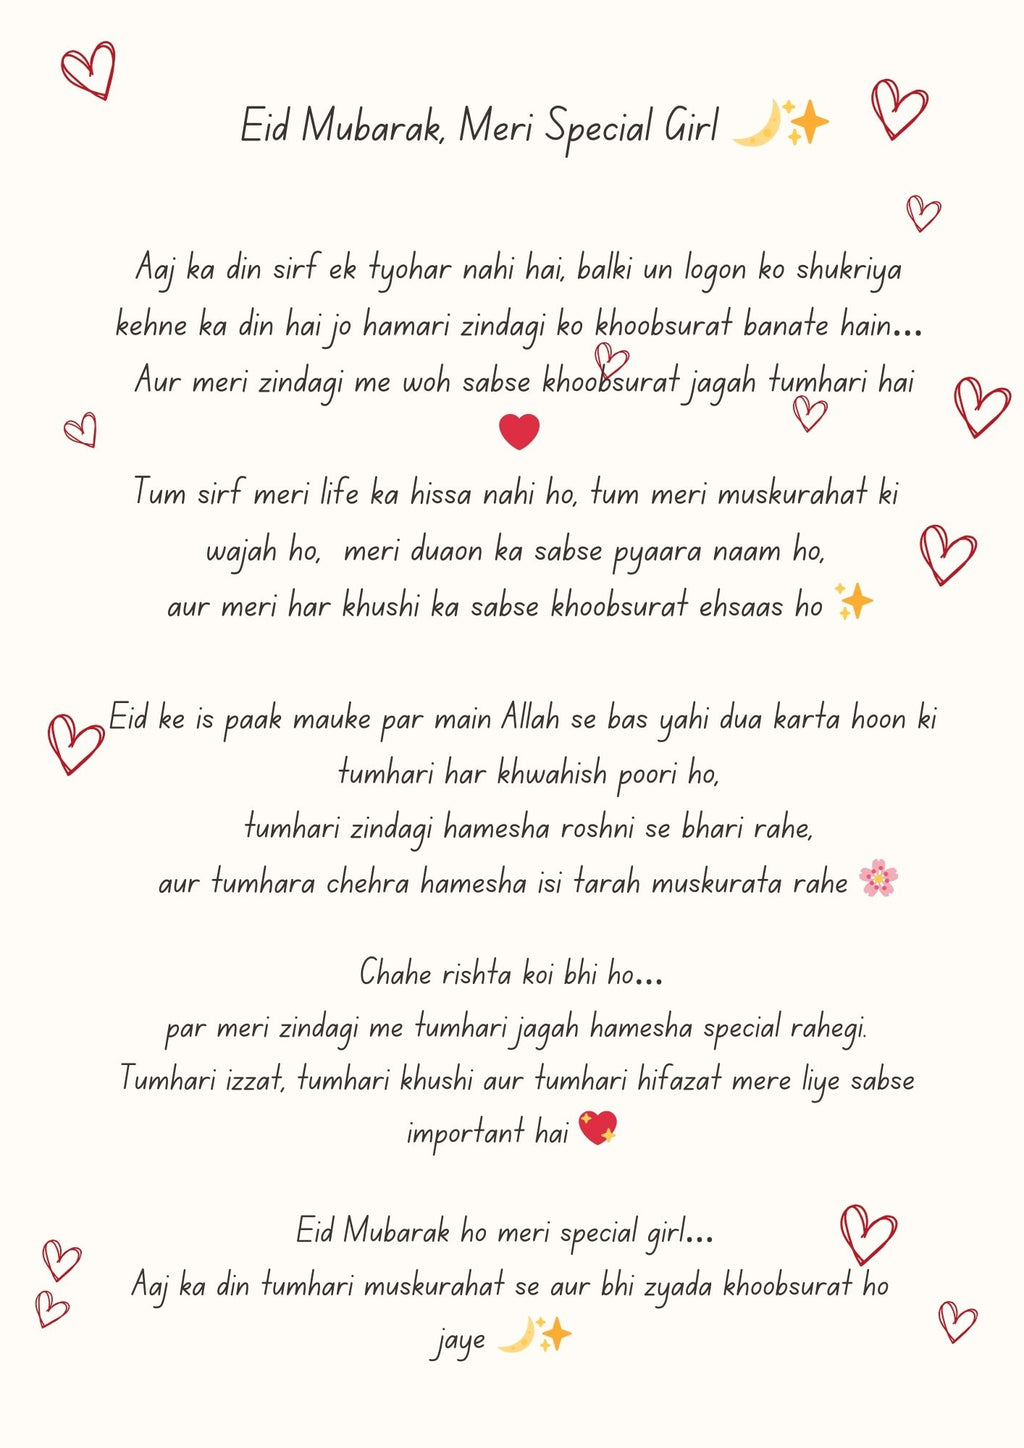 Eid Mubarak, Meri Special Girl 🌙✨
Aaj ka din sirf ek tyohar nahi hai, balki un logon ko shukriya
kehne ka din hai jo hamari zindagi ko khoobsurat banate hain...
Aur meri zindagi me woh sabse khoobsurat jagah tumhari hai
❤️
Tum sirf meri life ka hissa nahi ho, tum meri muskurahat ki
wajah ho, meri duaon ka sabse pyaara naam ho,
aur meri har khushi ka sabse khoobsurat ehsaas ho ✨
Eid ke is paak mauke par main Allah se bas yahi dua karta hoon ki
tumhari har khwahish poori ho,
tumhari zindagi hamesha roshni se bhari rahe,
aur tumhara chehra hamesha isi tarah muskurata rahe 🌸
Chahe rishta koi bhi ho...
par meri zindagi me tumhari jagah hamesha special rahegi.
Tumhari izzat, tumhari khushi aur tumhari hifazat mere liye sabse
important hai 💖
Eid Mubarak ho meri special girl...
Aaj ka din tumhari muskurahat se aur bhi zyada khoobsurat ho
jaye 🌙✨